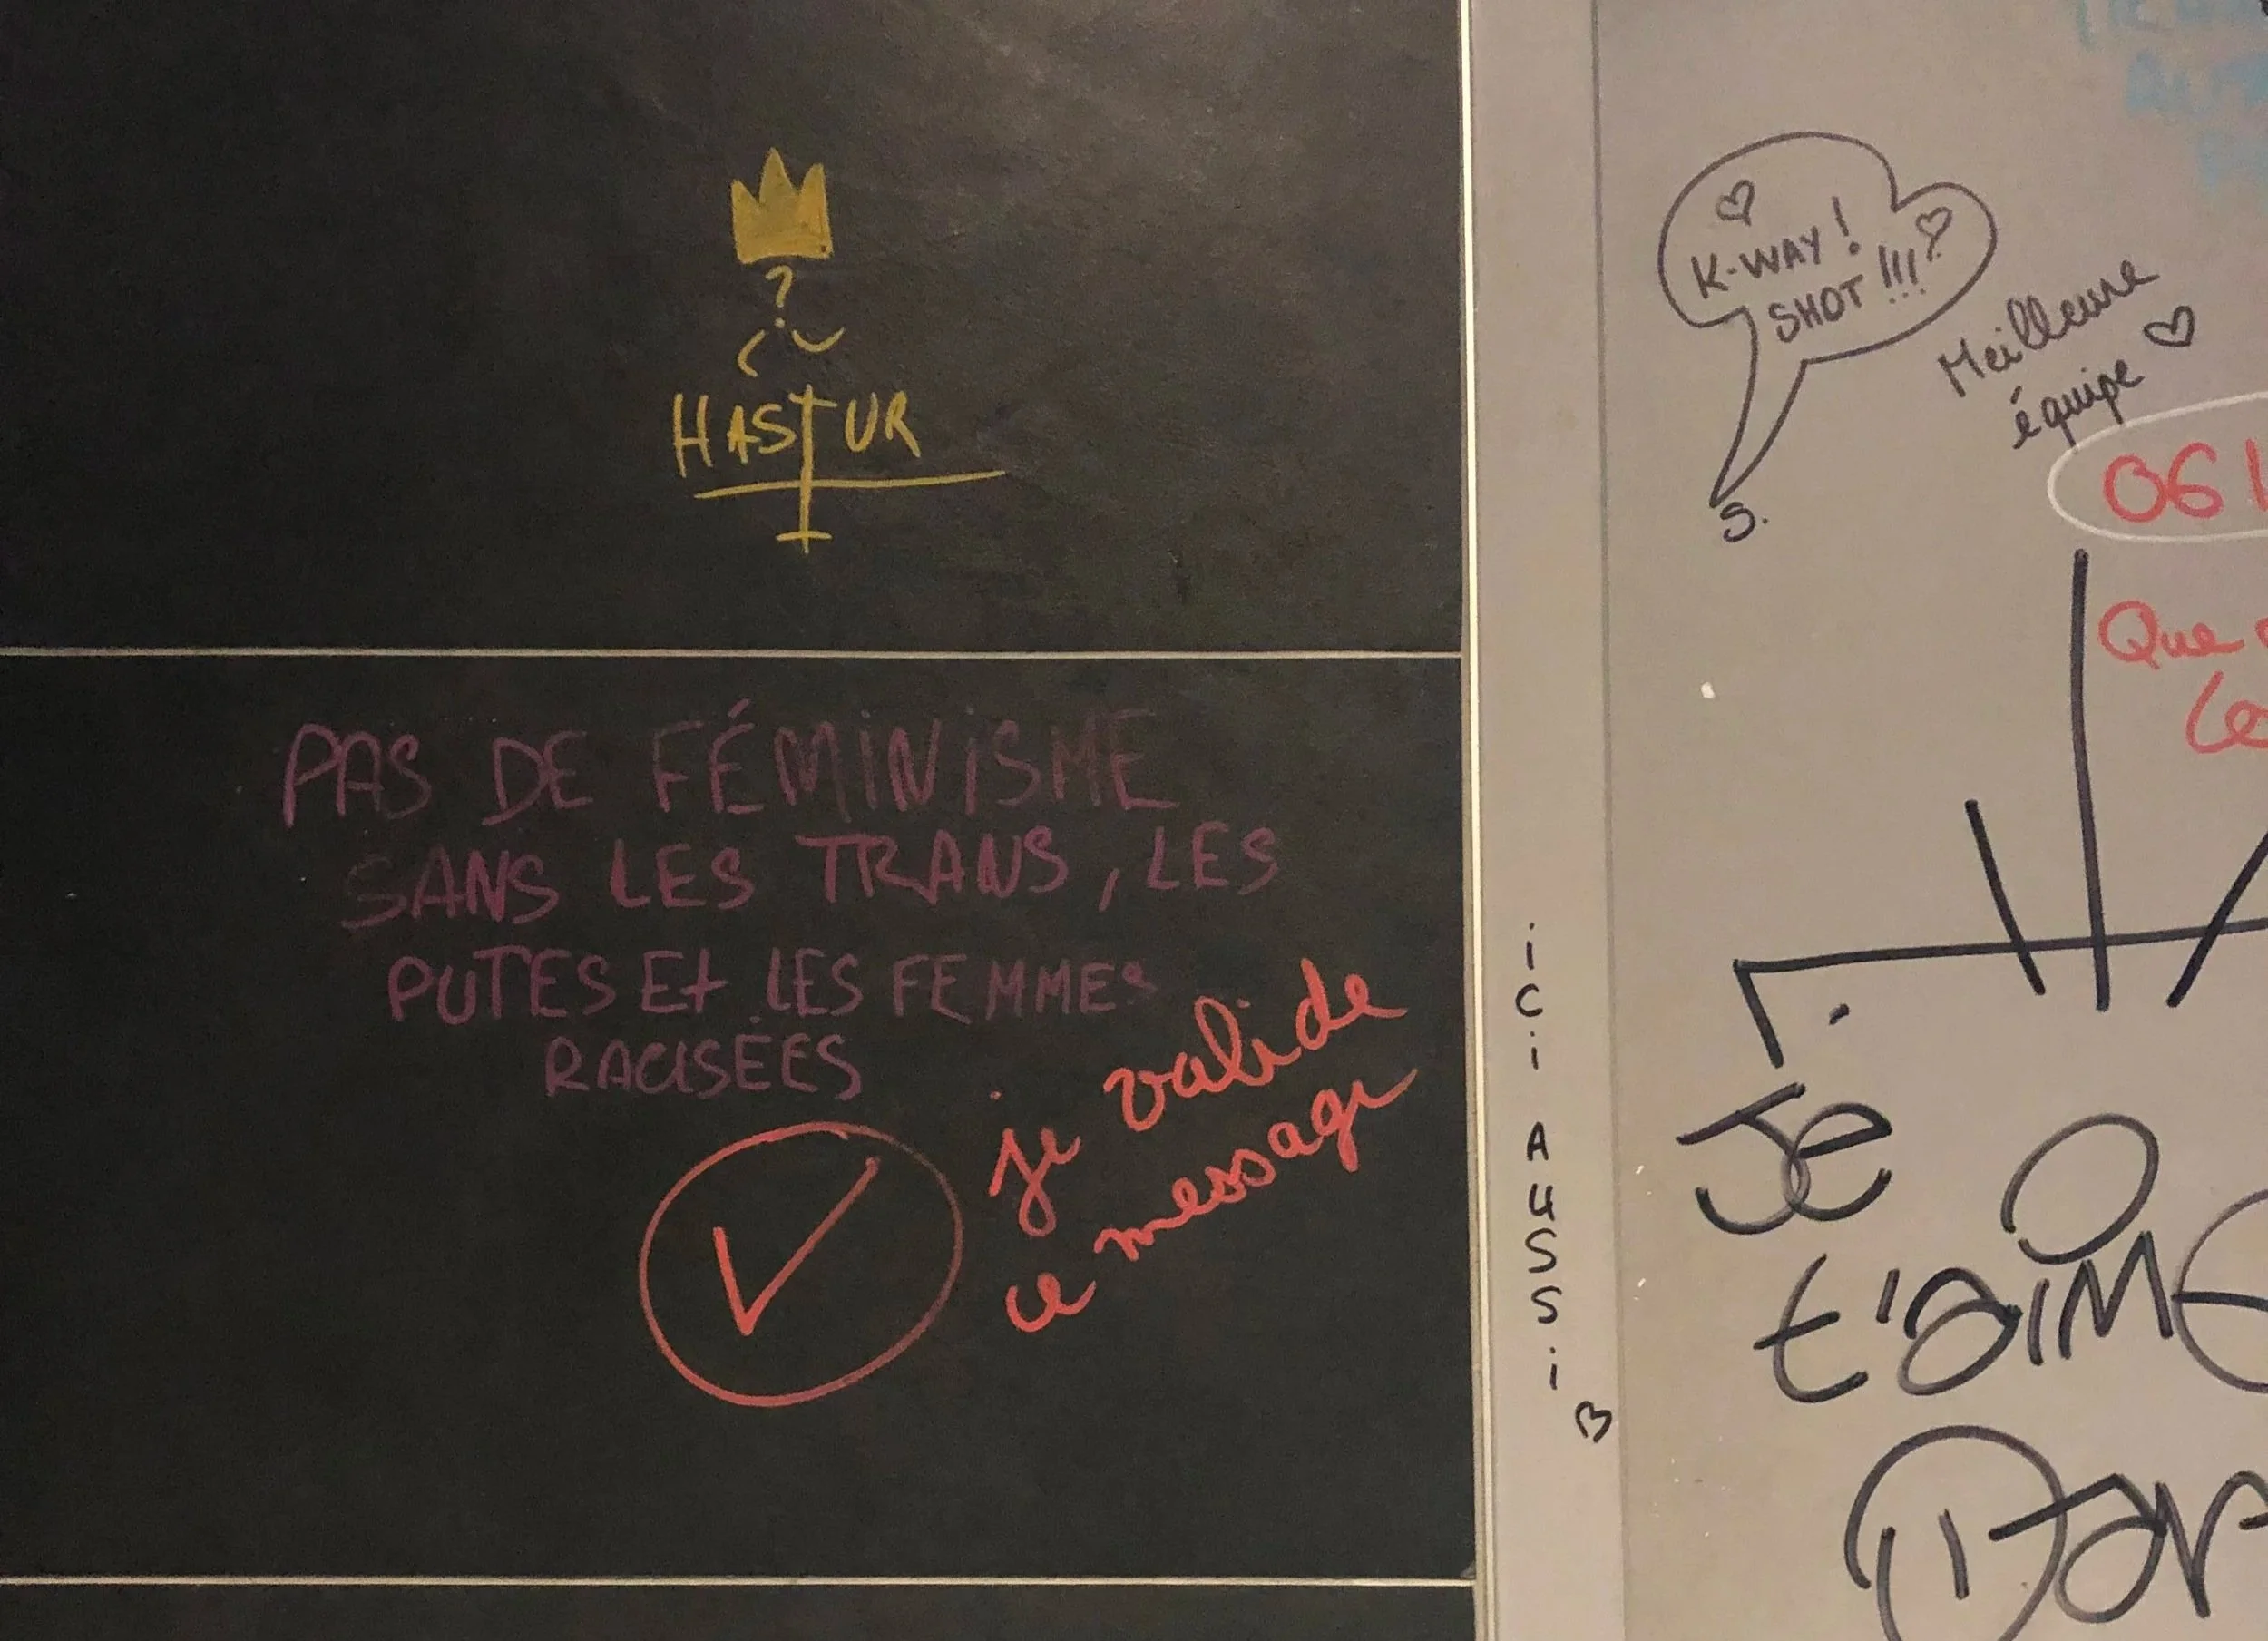 HASTUR
PAS DE FÉMINISME
SANS LES TRANS, LES
PUTES Et LES FEMMES
RACISÉES
je valide
ce message
iCi AUSSi
K-WAY!
SHOT!!!
S.
Meilleure
équipe
06 1
Que
Je
t'aime